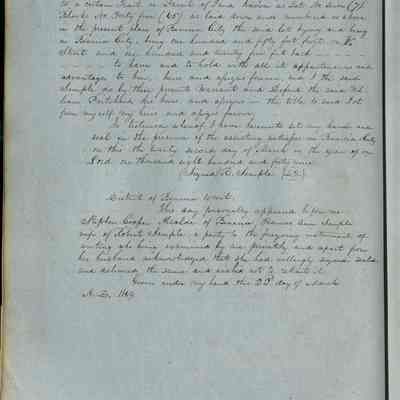 to a certain Tract or Parcel of Land known as Lot No Seven (7)
Block No Forty five (45) as laid down and numbered as above
in the present plan of Benicia City the said lot lying and being
in Benicia City, being one hundred and fifty feet front on
Street and one hundred and twenty five feet back
to have and to hold with all its appurtenances and
advantages to him, heirs and assigns forever, and I the said
Semple do by these presents Warrant and Defend the said
his heirs and assigns in the title to said Lot
from myself my heirs and assigns forever
In testimony whereof I have hereunto set my hand and
seal in the presence of the assisting witnesses in Benicia City
on this the twenty second day of March in the year of our
Lord one thousand eight hundred and forty nine
(Signed R. Semple {L.S.}
District of Benicia to wit.
This day personally appeared before me
Stephen Cooper Alcalde of Benicia, Frances Ann Semple
wife of Robert Semple, a party to the foregoing instrument of
writing who being examined by me privately and apart from
her husband acknowledged that she had willingly signed sealed
and delivered the same and wished not to retract it.
Given under my hand this 23d day of March
A.D. 1849